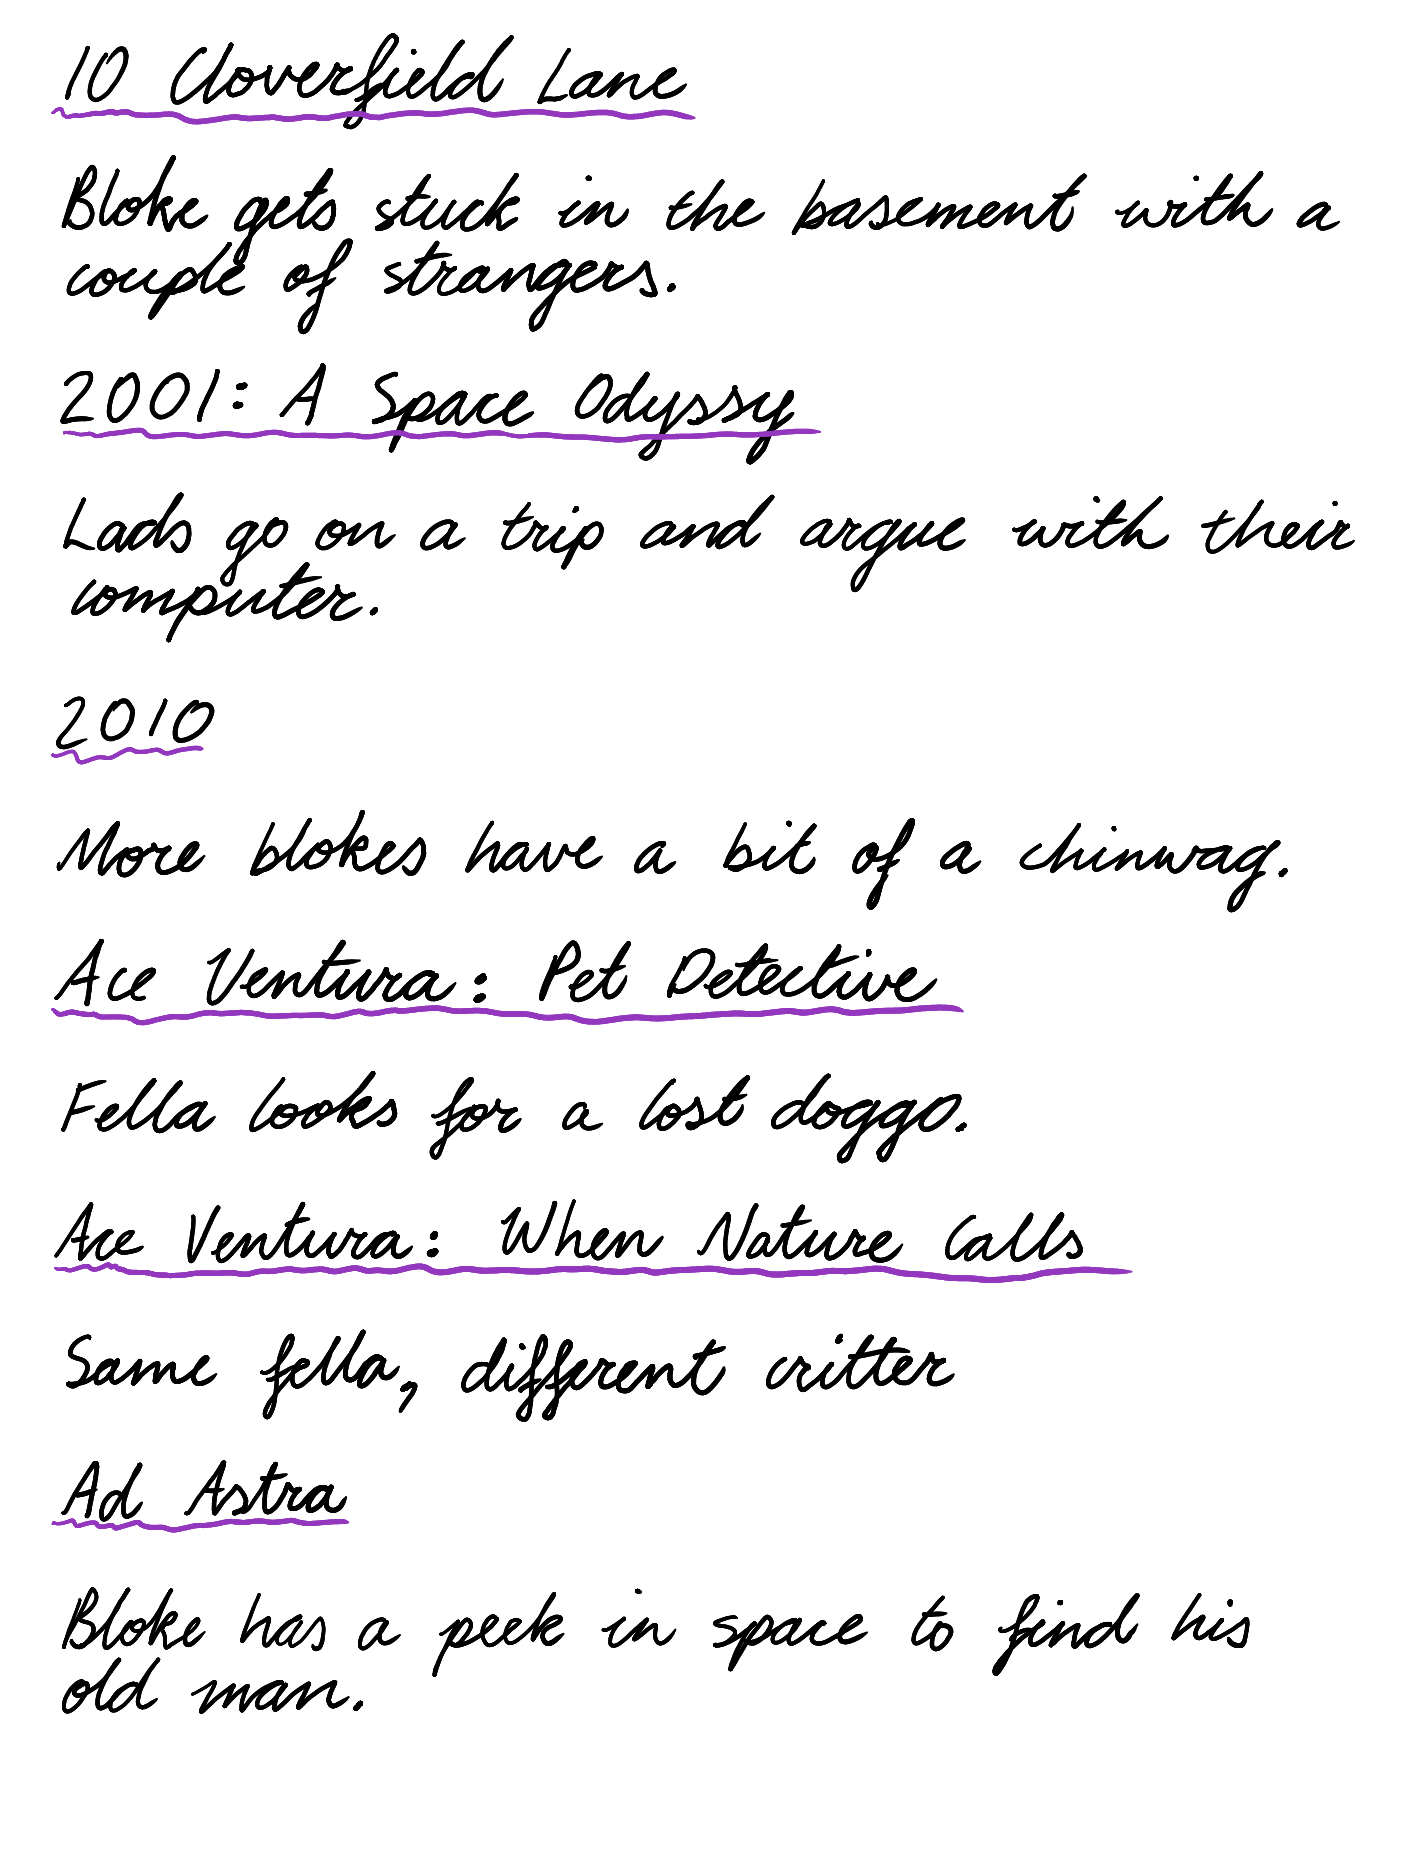 10 Cloverfield Lane
Bloke gets stuck in the basement with a
couple of strangers.
2001: A Space Odyssy
Lads go on a trip and argue with their
computer.
2010
More blokes have a bit of a chinwag.
Ace Ventura: Pet Detective
Fella looks for a lost doggo.
Ace Ventura: When Nature Calls
Same fella, different critter
Ad Astra
Bloke has a peek in space to find his
old man.